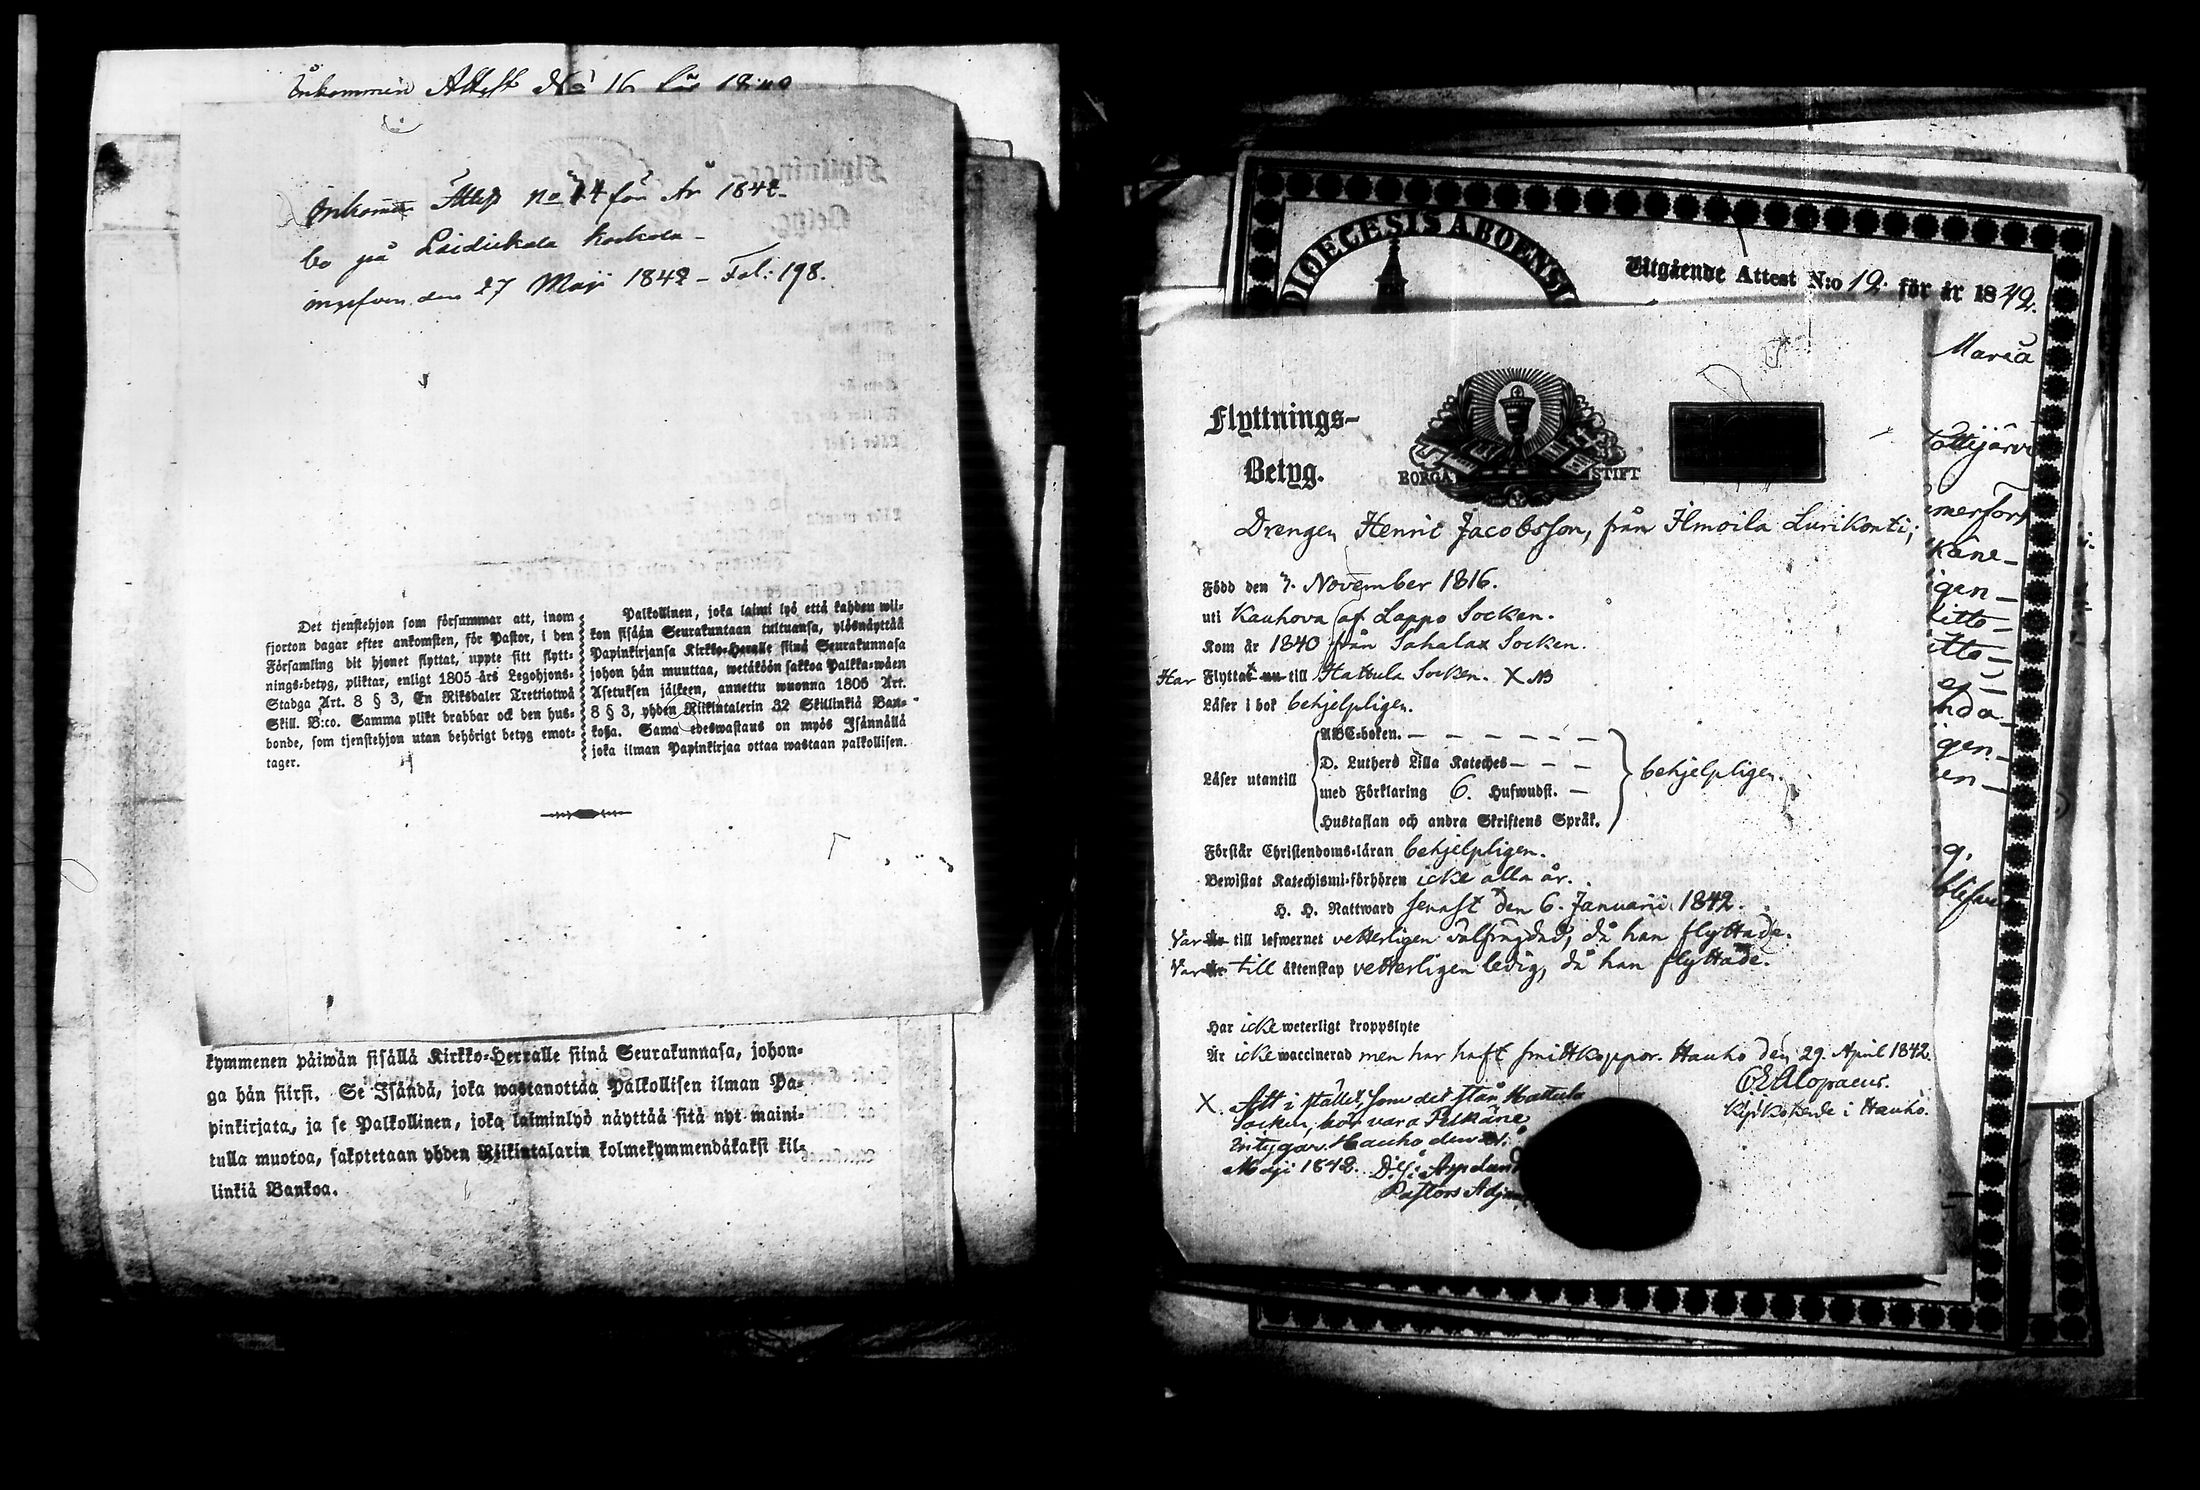 Inkommen Attest No 16 för 1840
Inkommen Attest No 14 för År 1842
bo på Laidickala Kockola
ingifven den 27 Maji 1842 - Fol: 198.
Det tjenstehjon som försummar att, inom
fjorton dagar efter ankomsten, för Pastor, i den
Församling dit hjonet flyttat, uppte sitt flytt-
nings-betyg, pliktar, enligt 1805 års Legohjons-
Stadga Art. 8 § 3, En Riksdaler Trettiotwå
Skill. B:co. Samma plikt drabbar ock den hus-
bonde, som tjenstehjon utan behörigt betyg emot-
tager.
Palkollinen, joka laimi lyö että kahden wii-
kon sisään Seurakuntaan tultuansa, ylösnäyttää
Papinkirjansa Kirkko-Herralle siinä Seurakunnasa
johon hän muuttaa, wetäköön sakkoa Palkka-wäen
Asetuksen jälkeen, annettu wuonna 1805 Art.
8 § 3, yhden Riikintalerin 32 Skillinkiä Ban-
kossa. Sama edeswastaus on myös Isännällä
joka ilman Papinkirjaa ottaa wastaan palkollisen.
kymmenen päiwän sisällä Kirkko-Herralle siinä Seurakunnasa, johon-
ga hän siirsi. Se Isändä, joka wastanottaa Palkollisen ilman Pa-
pinkirjata, ja se Palkollinen, joka laiminlyö näyttää sitä nyt maini-
tulla muotoa, sakotetaan yhden Riikintalarin kolmekymmendäkaksi kil-
linkiä Bankoa.
DIOECESIS ABOENSI
Utgående Attest N:o 12. för år 1842.
Maria
Flyttnings-
Betyg.
BORGÅ STIFT
Drengen Henric Jacobsson, från Ilmoila Lurikonti;
Född den 7. November 1816.
uti Kauhova af Lappo Socken.
Kom år 1840 från Sahalax Socken.
Har Flyttat nu till Hattula Socken. X NB
Läser i bok behjelpligen.
ABC-boken.
D. Lutherd Lilla Kateches
Läser utantill
med Förklaring 6. Hufwudst.
behjelpligen.
Hustaflan och andra Skriftens Språk.
Förstår Christendoms-läran behjelpligen.
Bewistat Katechismi-förhören icke alla år.
H. H. Nattward senast den 6. Januarii 1842.
Var Är till lefwernet vetterligen välfrägdad, då han flyttade.
Var Är till äktenskap vetterligen ledig, då han flyttade.
Har icke weterligt kroppslyte
Är icke waccinerad men har haft smittkoppor. Hauho den 29. April 1842.
Alopaeus.
Kyrkoherde i Hauho.
X. Att i stället, som det står Hattula
Socken, bör vara Pelkäne
intygar. Hauho den
Maji 1842.
Pastors Adj